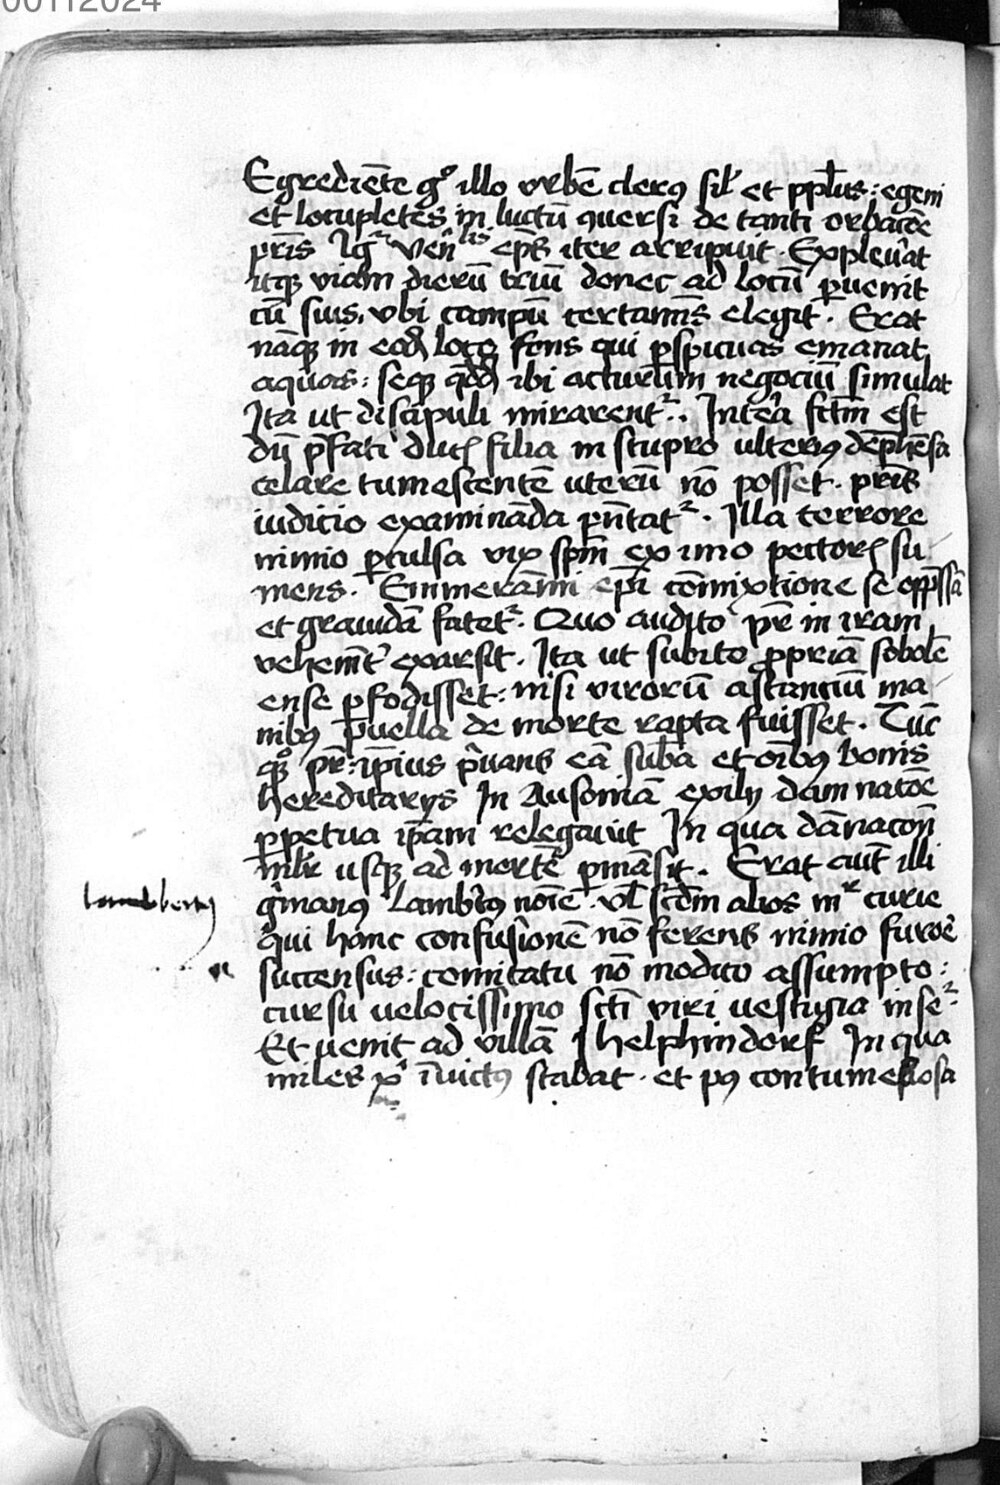 00112024
Egrediēte gº illo vrbē clerꝯ sil̛ et ppl̄us : egeni
et locupletes in luctū ꝯuersi de tanti orbac̄oe
pr̄is Igʳ ven̄lis ep̄s iter arripuit · Expleu̓at
itqꝫ viam dierū triū donec ad locū ꝑuenit
cū suis, vbi campū certamīs elegit · Erat
nāqꝫ in eod̄ loco fons qui ꝑspicuas emanat
aquas : seqꝫ qd̄d̄ ibi acturum negociū simulat
Ita ut discipuli mirarentʳ · Inte̓a fctm̄ est
dū p̄fati duc̄ filia in stupro ulterꝯ dep̄hēsa
celare tumescentē uterū nō posset · pr̄is
iuditio examināda p̄n̄tatʳ · Illa terrore
nimio ꝑculsa vix sp̄m ex imo pector̄ su
mens · Emmerāmi ep̄i cōmixtione se opp̄ssā
et grauidā fatetʳ · Quo audito pr̄ in iram
vehemt̓ exarsit · Ita ut subito ꝓpriā sobolē
ense ꝑfodisset : nisi virorū astanciū ma
nibꝯ puella de morte rapta fuisset · Tūc
qꝫº pr̄ : ip̄ius p̓uans eā sub̄a et oībꝯ bonis
hereditarijs In Ausoniā exilij damnatōe
ꝑpetua ip̄am relegauit In qua dānacōn̄
ml̄r usqꝫ ad mortē ꝑmāsit · Erat aut̄ illi
g̓manꝯ Lamb̓tꝯ noīe · vl̄ scd̄m alios mʳ curie
qui hanc confusionē nō ferens nimio furoē
succensus : comitatu nō modico assumpto :
cursu velocissimo sct̄i viri uestigia inseʳ
Et uenit ad villā Jhelphindorf In qua
miles xᵖⁱ īuictꝯ stabat · et pꝯ contumeliosa
lambertꝯ